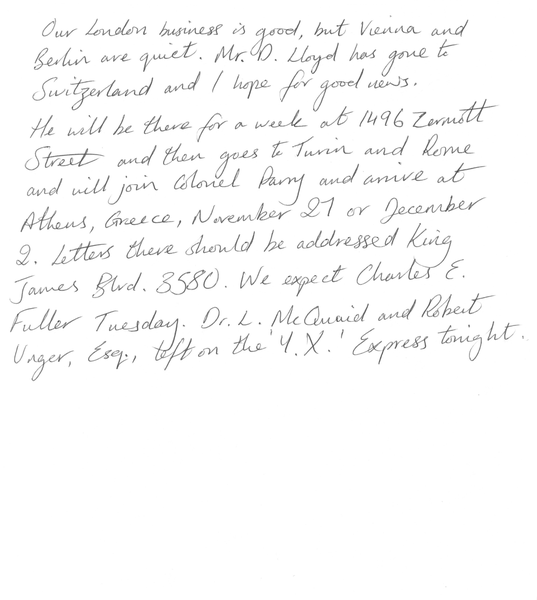 Our London business is good, but Vienna and
Berlin are quiet. Mr. D. Lloyd has gone to
Switzerland and I hope for good news.
He will be there for a week at 1496 Zermott
Street and then goes to Turin and Rome
and will join Colonel Parry and arrive at
Athens, Greece, November 27 or December
2. Letters there should be addressed King
James Blvd. 3580. We expect Charles E.
Fuller Tuesday. Dr. L. McQuaid and Robert
Unger, Esq., left on the 'Y.X.' Express tonight.